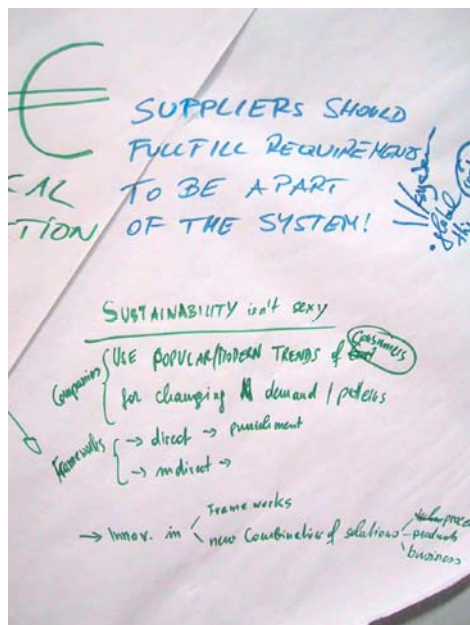 €
SUPPLIERS SHOULD
FULLFILL REQUIREMENTS
CAL TO BE A PART
TION OF THE SYSTEM!
global
SUSTAINABILITY isn't sexy
Companies USE POPULAR/MODERN TRENDS of Consumers
for changing demand / patterns
Frameworks → direct → punishment
→ indirect →
Frameworks
→ Innov. in new Combination of solutions
products
business